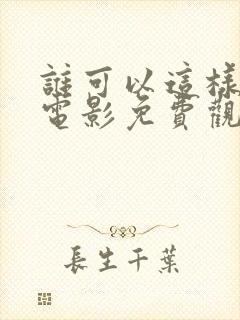 誰可以這樣
電影免費觀
長生千葉